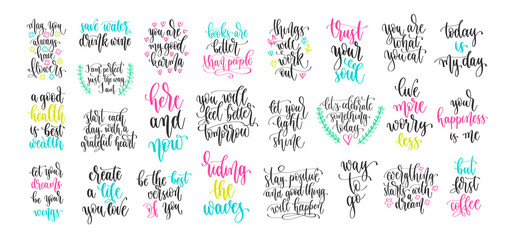 may you
always
have
flowers
save water
drink wine
you are
my good
karma
books are
better
than people
things
will
work
out
trust
your
soul
you are
what
you eat
today
is
my day
I am perfect
just the way
I am
a good
health
is best
wealth
start each
day with a
grateful heart
here
and
now
you will
feel better
tomorrow
let your
light
shine
let's celebrate
something
today
live
more
worry
less
your
happiness
is me
let your
dreams
be your
wings
create
a life
you love
be the best
version
of you
riding
the
waves
stay positive
and good things
will happen
way
to
go
everything
starts with
a dream
but
first
coffee